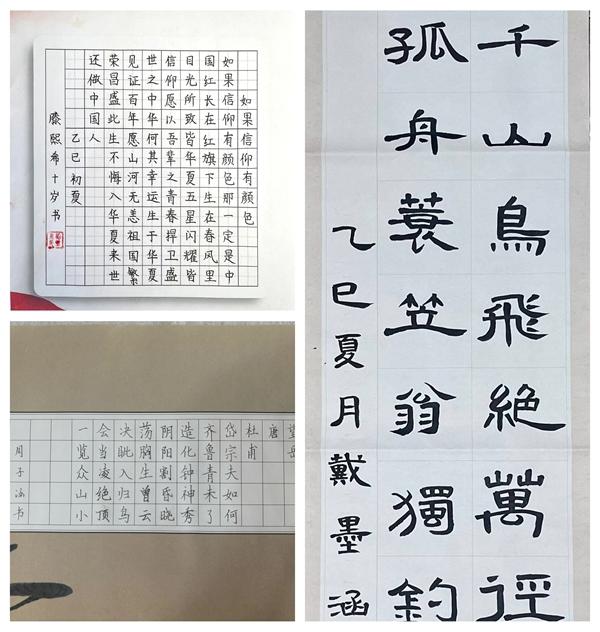 如果信仰有颜色
如果信仰有颜色那一定是中
国红长在红旗下生在春风里
目光所致皆华夏五星闪耀皆
信仰愿以吾辈之青春捍卫盛
世之中华何其幸运生于华夏
见证百年愿山河无恙祖国繁
荣昌盛此生不悔入华夏来世
还做中国人
乙巳初夏
滕熙希十岁书
望岳
唐
杜甫
岱宗夫如何
齐鲁青未了
造化钟神秀
阴阳割昏晓
荡胸生曾云
决眦入归鸟
会当凌绝顶
一览众山小
月子涵书
千山鳥飛絶萬徑
孤舟蓑笠翁獨釣
乙巳夏月戴墨涵